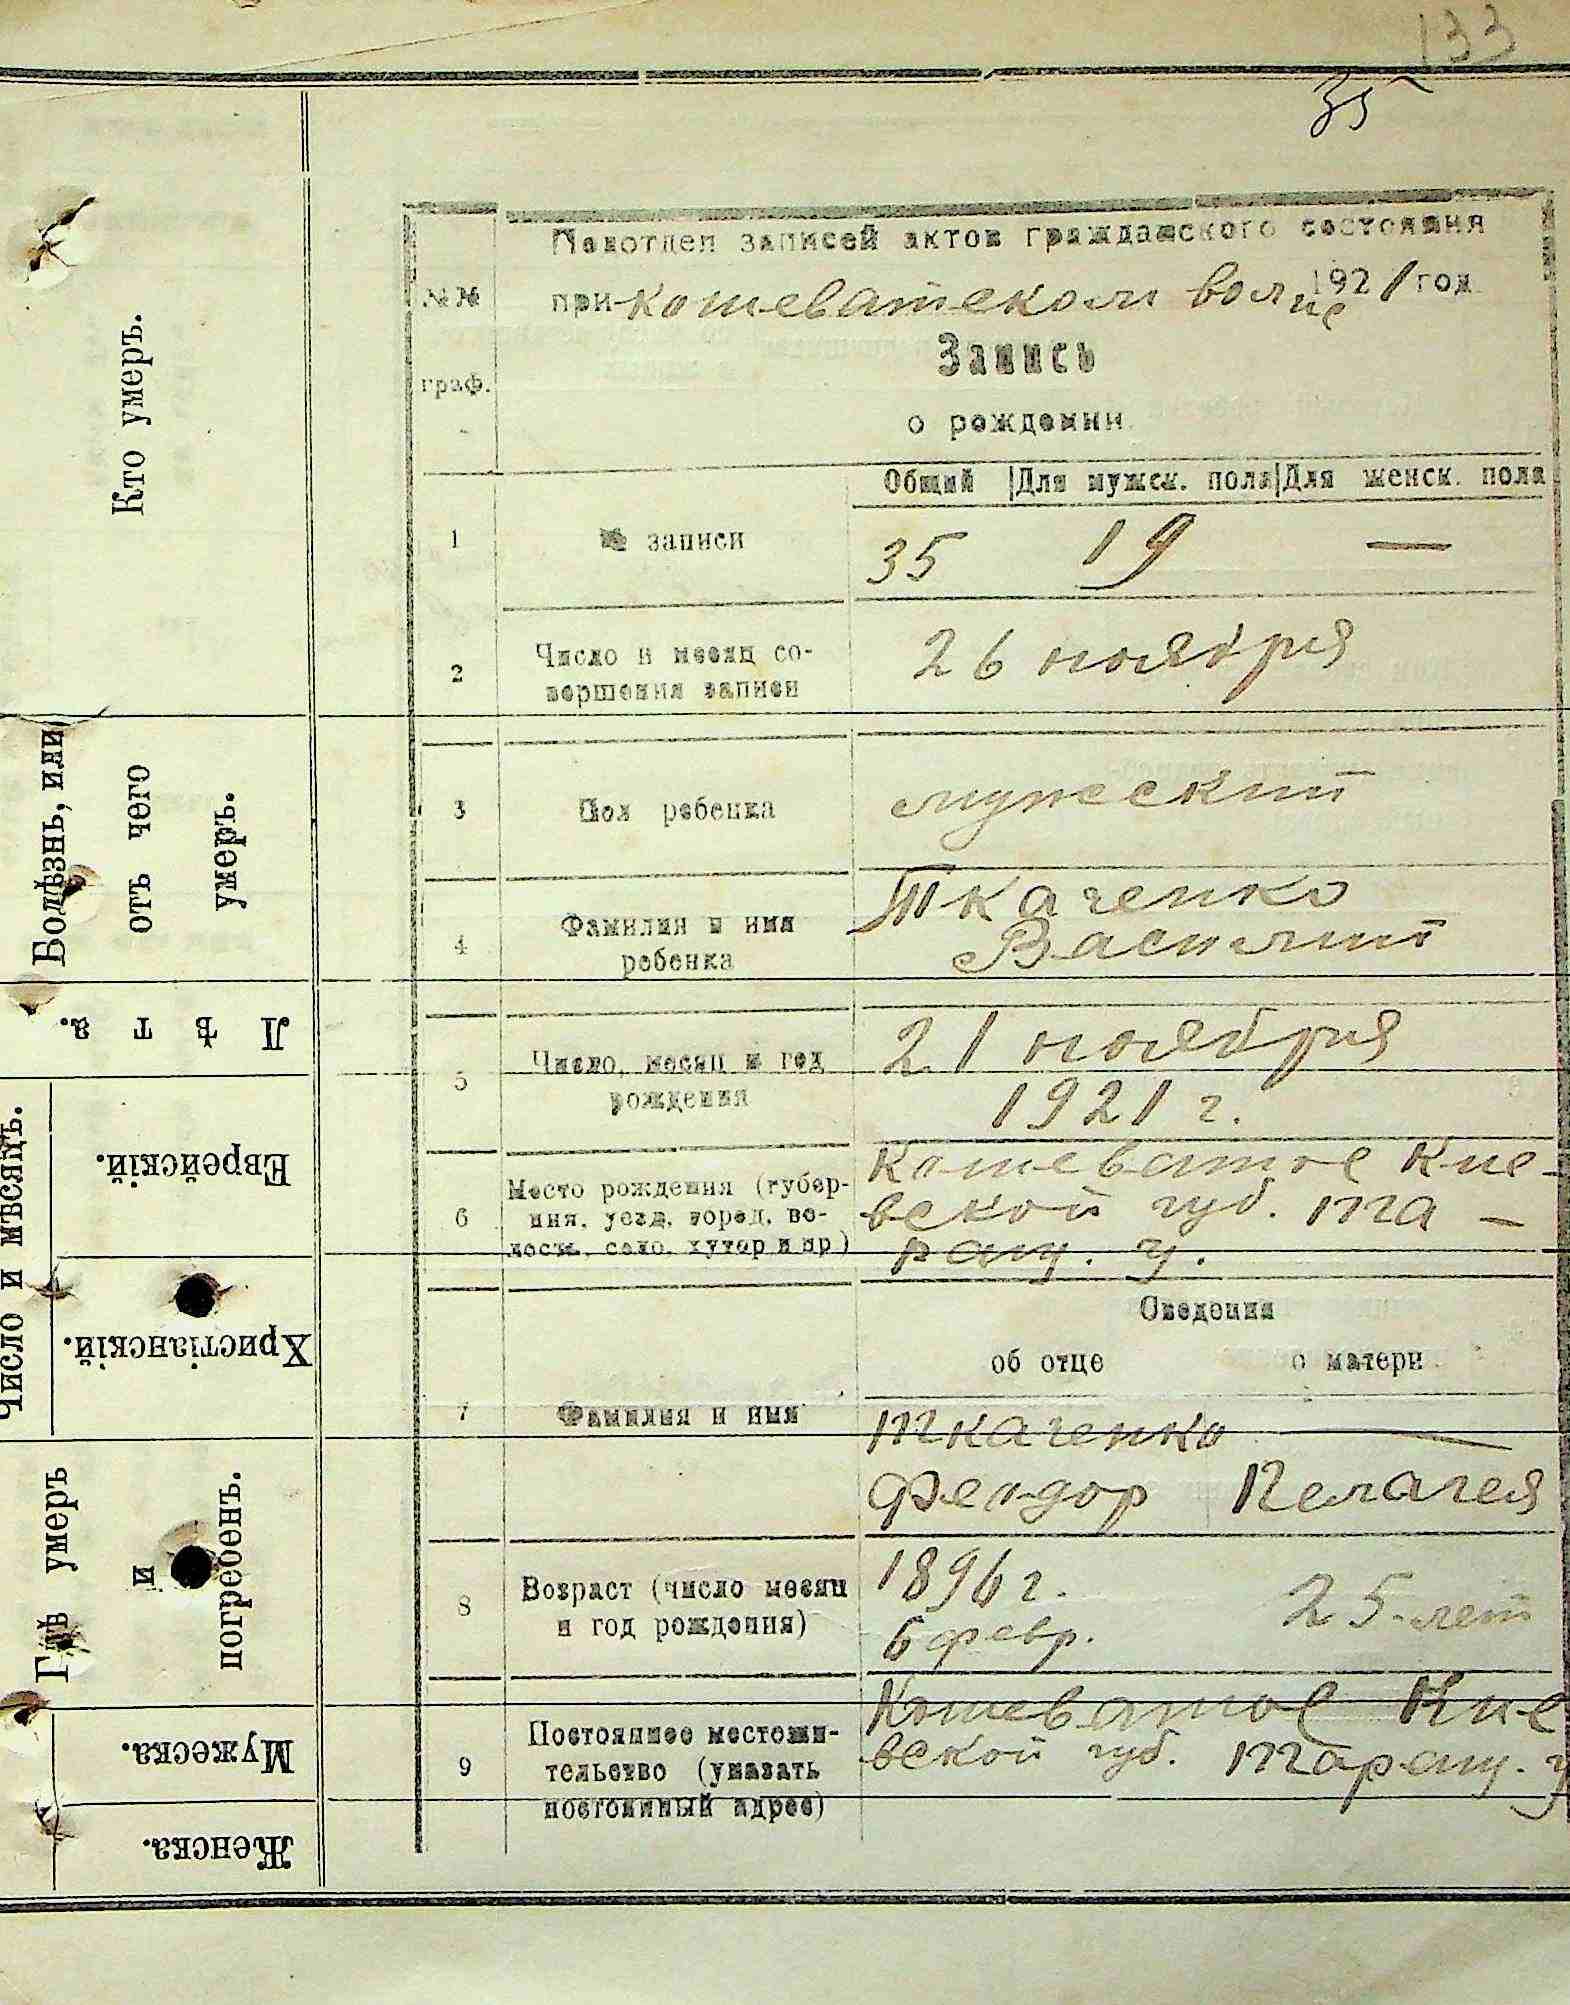 133
35
Подотдел записей актов гражданского состояния
№№ при Кошеватском волис 1921 год
Запись
граф.
о рождении
Общий Для мужск. пола Для женск. пола
1 № записи 35 19 —
2 Число и месяц со-
вершения записи
26 ноября
3 Пол ребенка мужеский
4 Фамилия и имя
ребенка
Ткаченко
Василий
5 Число, месяц и год
рождения
21 ноября
1921 г.
6 Место рождения (губер-
ния, уезд, город, во-
лость, село, хутор и пр)
Кошеватое Кие-
вской губ. Та-
ращ. у.
Сведения
об отце о матери
7 Фамилия и имя
Ткаченко —
Феодор Пелагея
8 Возраст (число месяц
и год рождения)
1896 г.
6 февр.
25 лет
9 Постоянное местожи-
тельство (указать
постоянный адрес)
Кошеватое Кие
вской губ. Таращ. у
Кто умеръ.
Болѣзнь, или
отъ чего
умеръ.
Лѣта.
Число и мѣсяцъ.
Еврейскій.
Христіанскій.
Гдѣ умеръ
и
погребенъ.
Мужеска.
Женска.